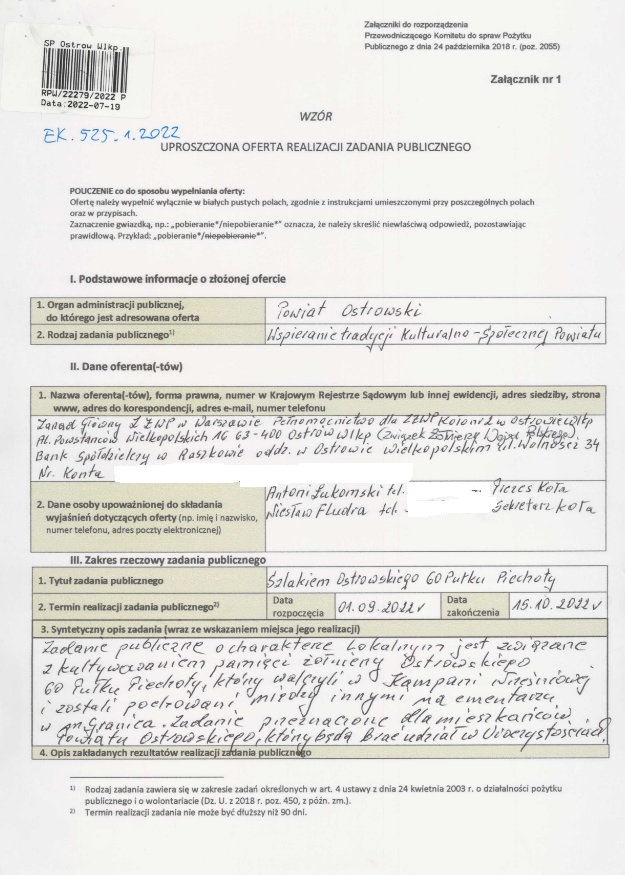 Załączniki do rozporządzenia
Przewodniczącego Komitetu do spraw Pożytku
Publicznego z dnia 24 października 2018 r. (poz. 2055)
SP Ostrow Wlkp.
RPW/22279/2022 P
Data:2022-07-19
Załącznik nr 1
WZÓR
EK.525.1.2022
UPROSZCZONA OFERTA REALIZACJI ZADANIA PUBLICZNEGO
POUCZENIE co do sposobu wypełniania oferty:
Ofertę należy wypełnić wyłącznie w białych pustych polach, zgodnie z instrukcjami umieszczonymi przy poszczególnych polach
oraz w przypisach.
Zaznaczenie gwiazdką, np.: „pobieranie*/niepobieranie*" oznacza, że należy skreślić niewłaściwą odpowiedź, pozostawiając
prawidłową. Przykład: „pobieranie*/niepobieranie*".
I. Podstawowe informacje o złożonej ofercie
1. Organ administracji publicznej,
do którego jest adresowana oferta
Powiat Ostrowski
2. Rodzaj zadania publicznego1)
Wspieranie tradycji Kulturalno-Społecznej Powiatu
II. Dane oferenta(-tów)
1. Nazwa oferenta(-tów), forma prawna, numer w Krajowym Rejestrze Sądowym lub innej ewidencji, adres siedziby, strona
www, adres do korespondencji, adres e-mail, numer telefonu
Zarząd Główny ZŻWP w Warszawie Pełnomocnictwo dla ZŻWP Koło nr 2 w Ostrowie Wlkp
Al. Powstańców Wielkopolskich 16 63-400 Ostrów Wlkp (Związek Żołnierzy Wojska Polskiego)
Bank Spółdzielczy w Raszkowie oddz. w Ostrowie Wielkopolskim ul. Wolności 34
Nr. Konta
2. Dane osoby upoważnionej do składania
wyjaśnień dotyczących oferty (np. imię i nazwisko,
numer telefonu, adres poczty elektronicznej)
Antoni Łukomski tel. – Prezes Koła
Wiesław Fludra tel. Sekretarz Koła
III. Zakres rzeczowy zadania publicznego
1. Tytuł zadania publicznego
Szlakiem Ostrowskiego 60 Pułku Piechoty
2. Termin realizacji zadania publicznego2)
Data
rozpoczęcia
01.09.2022r
Data
zakończenia
15.10.2022r
3. Syntetyczny opis zadania (wraz ze wskazaniem miejsca jego realizacji)
Zadanie publiczne o charakterze lokalnym jest związane
z kultywowaniem pamięci żołnierzy Ostrowskiego
60 Pułku Piechoty, który walczyli w Kampani Wrześniowej
i zostali pochowani między innymi na cmentarzu
w m. Granica. Zadanie przeznaczone dla mieszkańców
Powiatu Ostrowskiego, który będą brać udział w Uroczystościach.
4. Opis zakładanych rezultatów realizacji zadania publicznego
1) Rodzaj zadania zawiera się w zakresie zadań określonych w art. 4 ustawy z dnia 24 kwietnia 2003 r. o działalności pożytku
publicznego i o wolontariacie (Dz. U. z 2018 r. poz. 450, z późn. zm.).
2) Termin realizacji zadania nie może być dłuższy niż 90 dni.